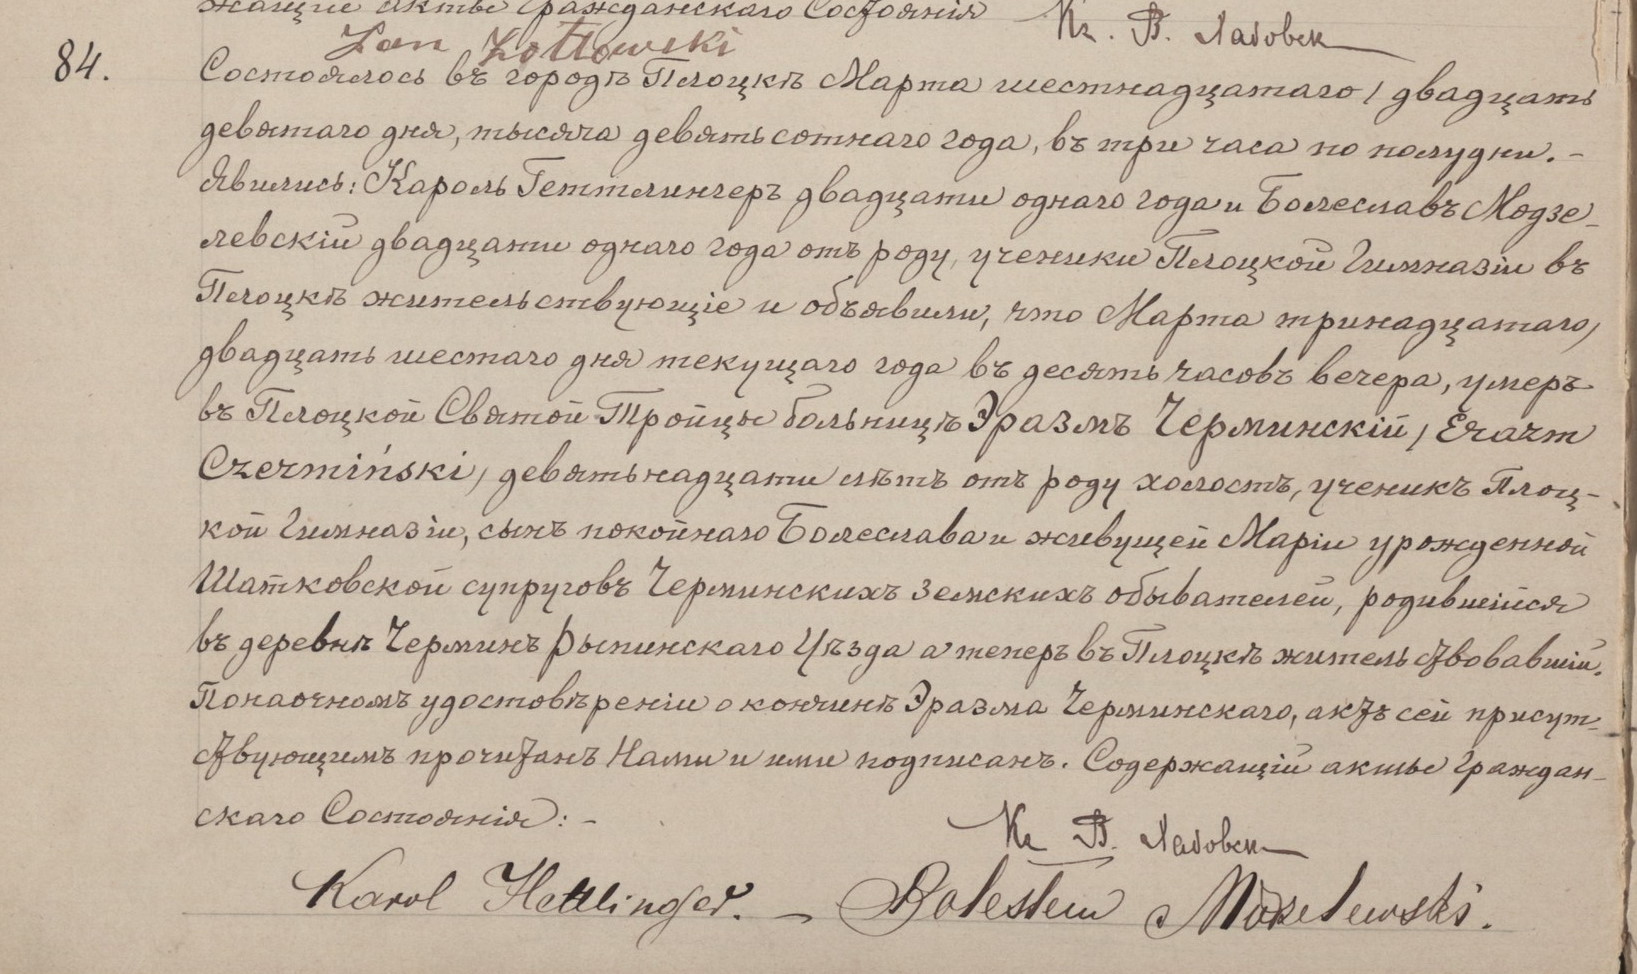 жащие Акты Гражданскаго Состоянія Кс. В. Лабовск
Jan Żółtowski
84.
Состоялось въ городѣ Плоцкѣ Марта шестнадцатаго / двадцать
девятаго дня, тысяча девятьсотнаго года, въ три часа по полудни. –
Явились: Кароль Геттлингеръ двадцати однаго года и Болеславъ Модзе-
левскій двадцати однаго года отъ роду, ученики Плоцкой Гимназіи въ
Плоцкѣ жительствующіе и объявили, что Марта тринадцатаго /
двадцать шестаго дня текущаго года въ десять часовъ вечера, умеръ
въ Плоцкой Святой Тройцы больницѣ Эразмъ Черминскій / Erazm
Czermiński / девятьнадцати лѣтъ отъ роду холостъ, ученикъ Плоц-
кой Гимназіи, сынъ покойнаго Болеслава и живущей Маріи урожденной
Шатковской супруговъ Черминскихъ земскихъ обывателей, родившійся
въ деревнѣ Черминъ Рыпинскаго Уѣзда а теперь въ Плоцкѣ жительствовавшій.
Понаочномъ удостовѣреніи о кончинѣ Эразма Черминскаго, актъ сей присут-
ствующимъ прочитанъ Нами и ими подписанъ. Содержащій акты Граждан-
скаго Состоянія: –
Кс В. Лабовск
Karol Hettlinger. – Bolesław Modzelewski.